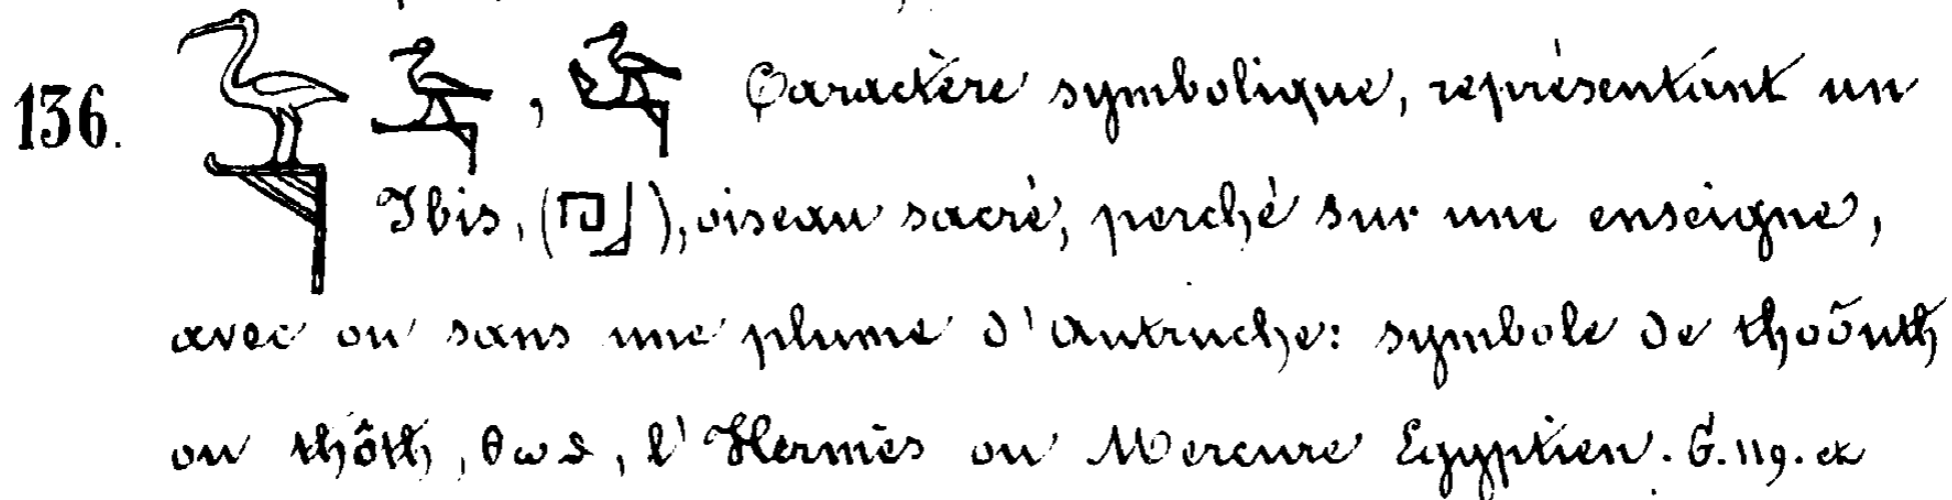 136. 𓅝 𓅝, 𓅝 Caractère symbolique, représentant un
Ibis, (𓉔𓃀), oiseau sacré, perché sur une enseigne,
avec ou sans une plume d'Autruche: symbole de thoôuth
ou thôth, θωⲑ, l'Hermès ou Mercure Egyptien. G. 119. et